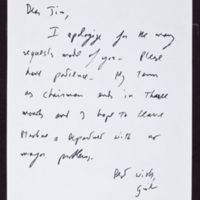 Dear Jim,
I apologize for the many
requests made of you. Please
have patience. My term
as chairman ends in three
months and I hope to leave
a department with no
major problems.
Best wishes,